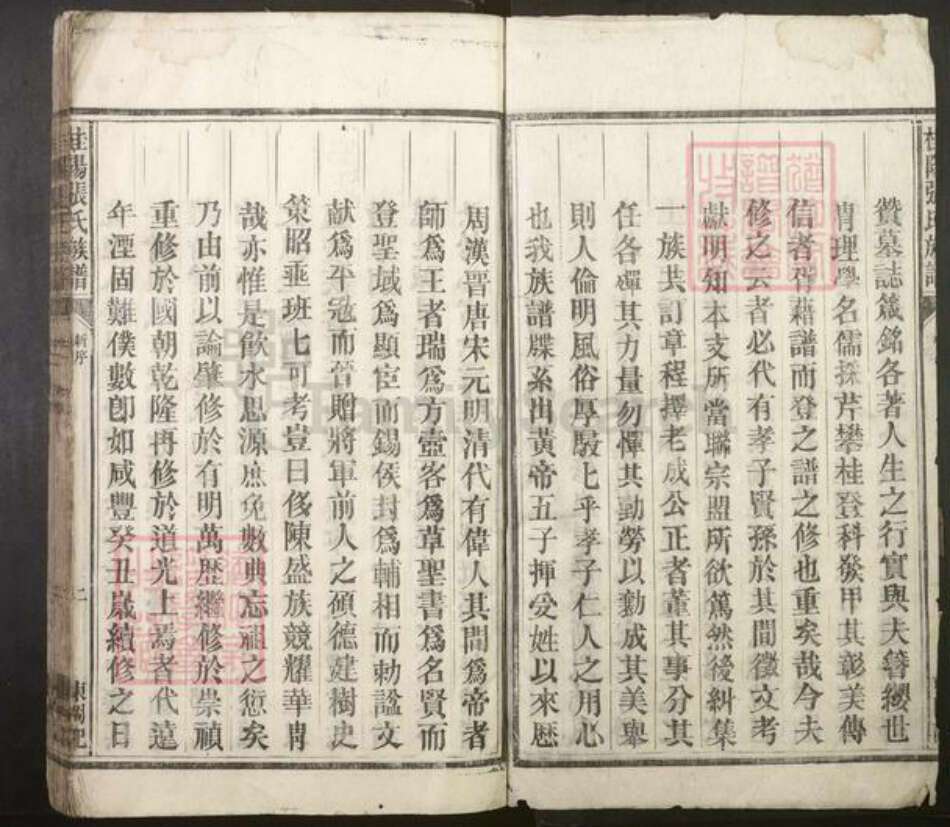 贊墓誌箴銘各著人生之行實與夫簪纓世
胄理學名儒採芹攀桂登科發甲其彰美傳
信者胥藉譜而登之譜之修也重矣哉今夫
修之云者必代有孝子賢孫於其間徵文考
獻明知本支所當聯宗盟所欲篤然後糾集
一族共訂章程擇老成公正者董其事分其
任各殫其力量勿憚其勤勞以勷成其美舉
則人倫明風俗厚殹七乎孝子仁人之用心
也我族譜牒系出黃帝五子揮受姓以來歷
周漢晉唐宋元明清代有偉人其間為帝者
師為王者瑞為方壺客為草聖書為名賢而
登聖域為顯宦而錫侯封為輔相而勅諡文
獻為平冦而晉贈將軍前人之碩德建樹史
策昭乖班七可考豈曰侈陳盛族競耀華胄
哉亦惟是飲水思源庶免數典忘祖之愆矣
乃由前以論肇修於有明萬歷繼修於崇禎
重修於國朝乾隆再修於道光上焉者代遠
年湮固難僕數卽如咸豐癸丑歲續修之日
桂陽張氏族譜
新序
二